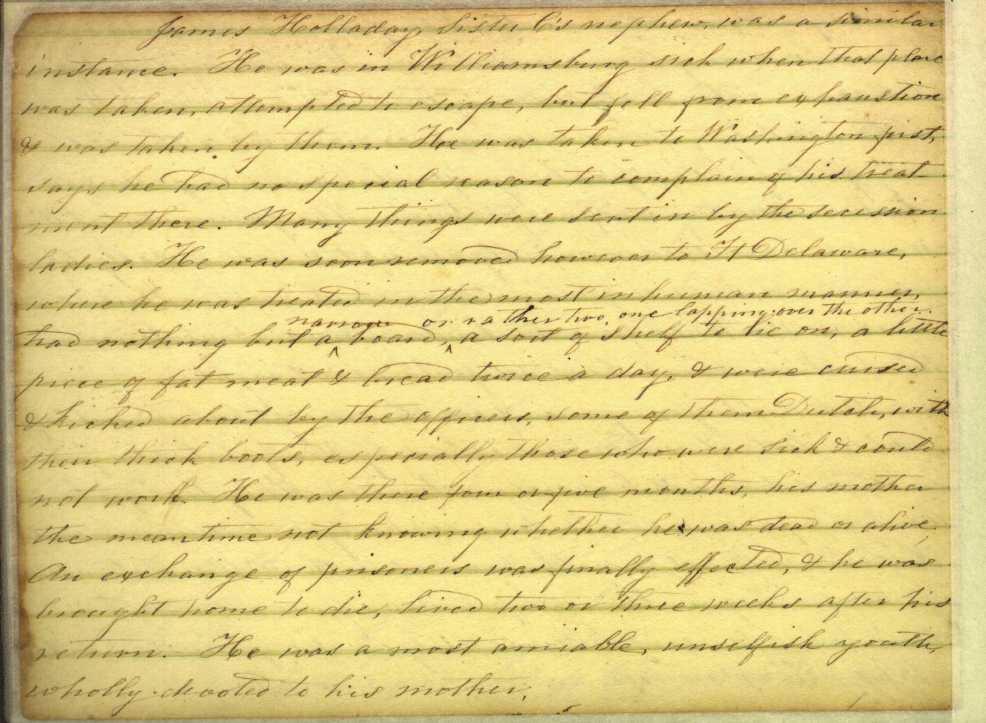 James Holladay, Sister C's nephew, was a similar
instance. He was in Williamsburg sick when that place
was taken, attempted to escape, but fell from exhaustion
& was taken by them. He was taken to Washington first,
says he had no special reason to complain of his treat
ment there. Many things were sent in by the secession
ladies. He was soon removed however to Ft Delaware,
where he was treated in the most inhuman manner,
narrow or rather two, one lapping over the other
had nothing but a board, a sort of shelf to lie on, a little
piece of fat meat & bread twice a day, & were cursed
& kicked about by the officers, some of them Dutch, with
their thick boots, especially those who were sick & could
not work. He was there four or five months, his mother
the meantime not knowing whether he was dead or alive.
An exchange of prisoners was finally effected, & he was
brought home to die, lived two or three weeks after his
return. He was a most amiable, unselfish youth,
wholly devoted to his mother.